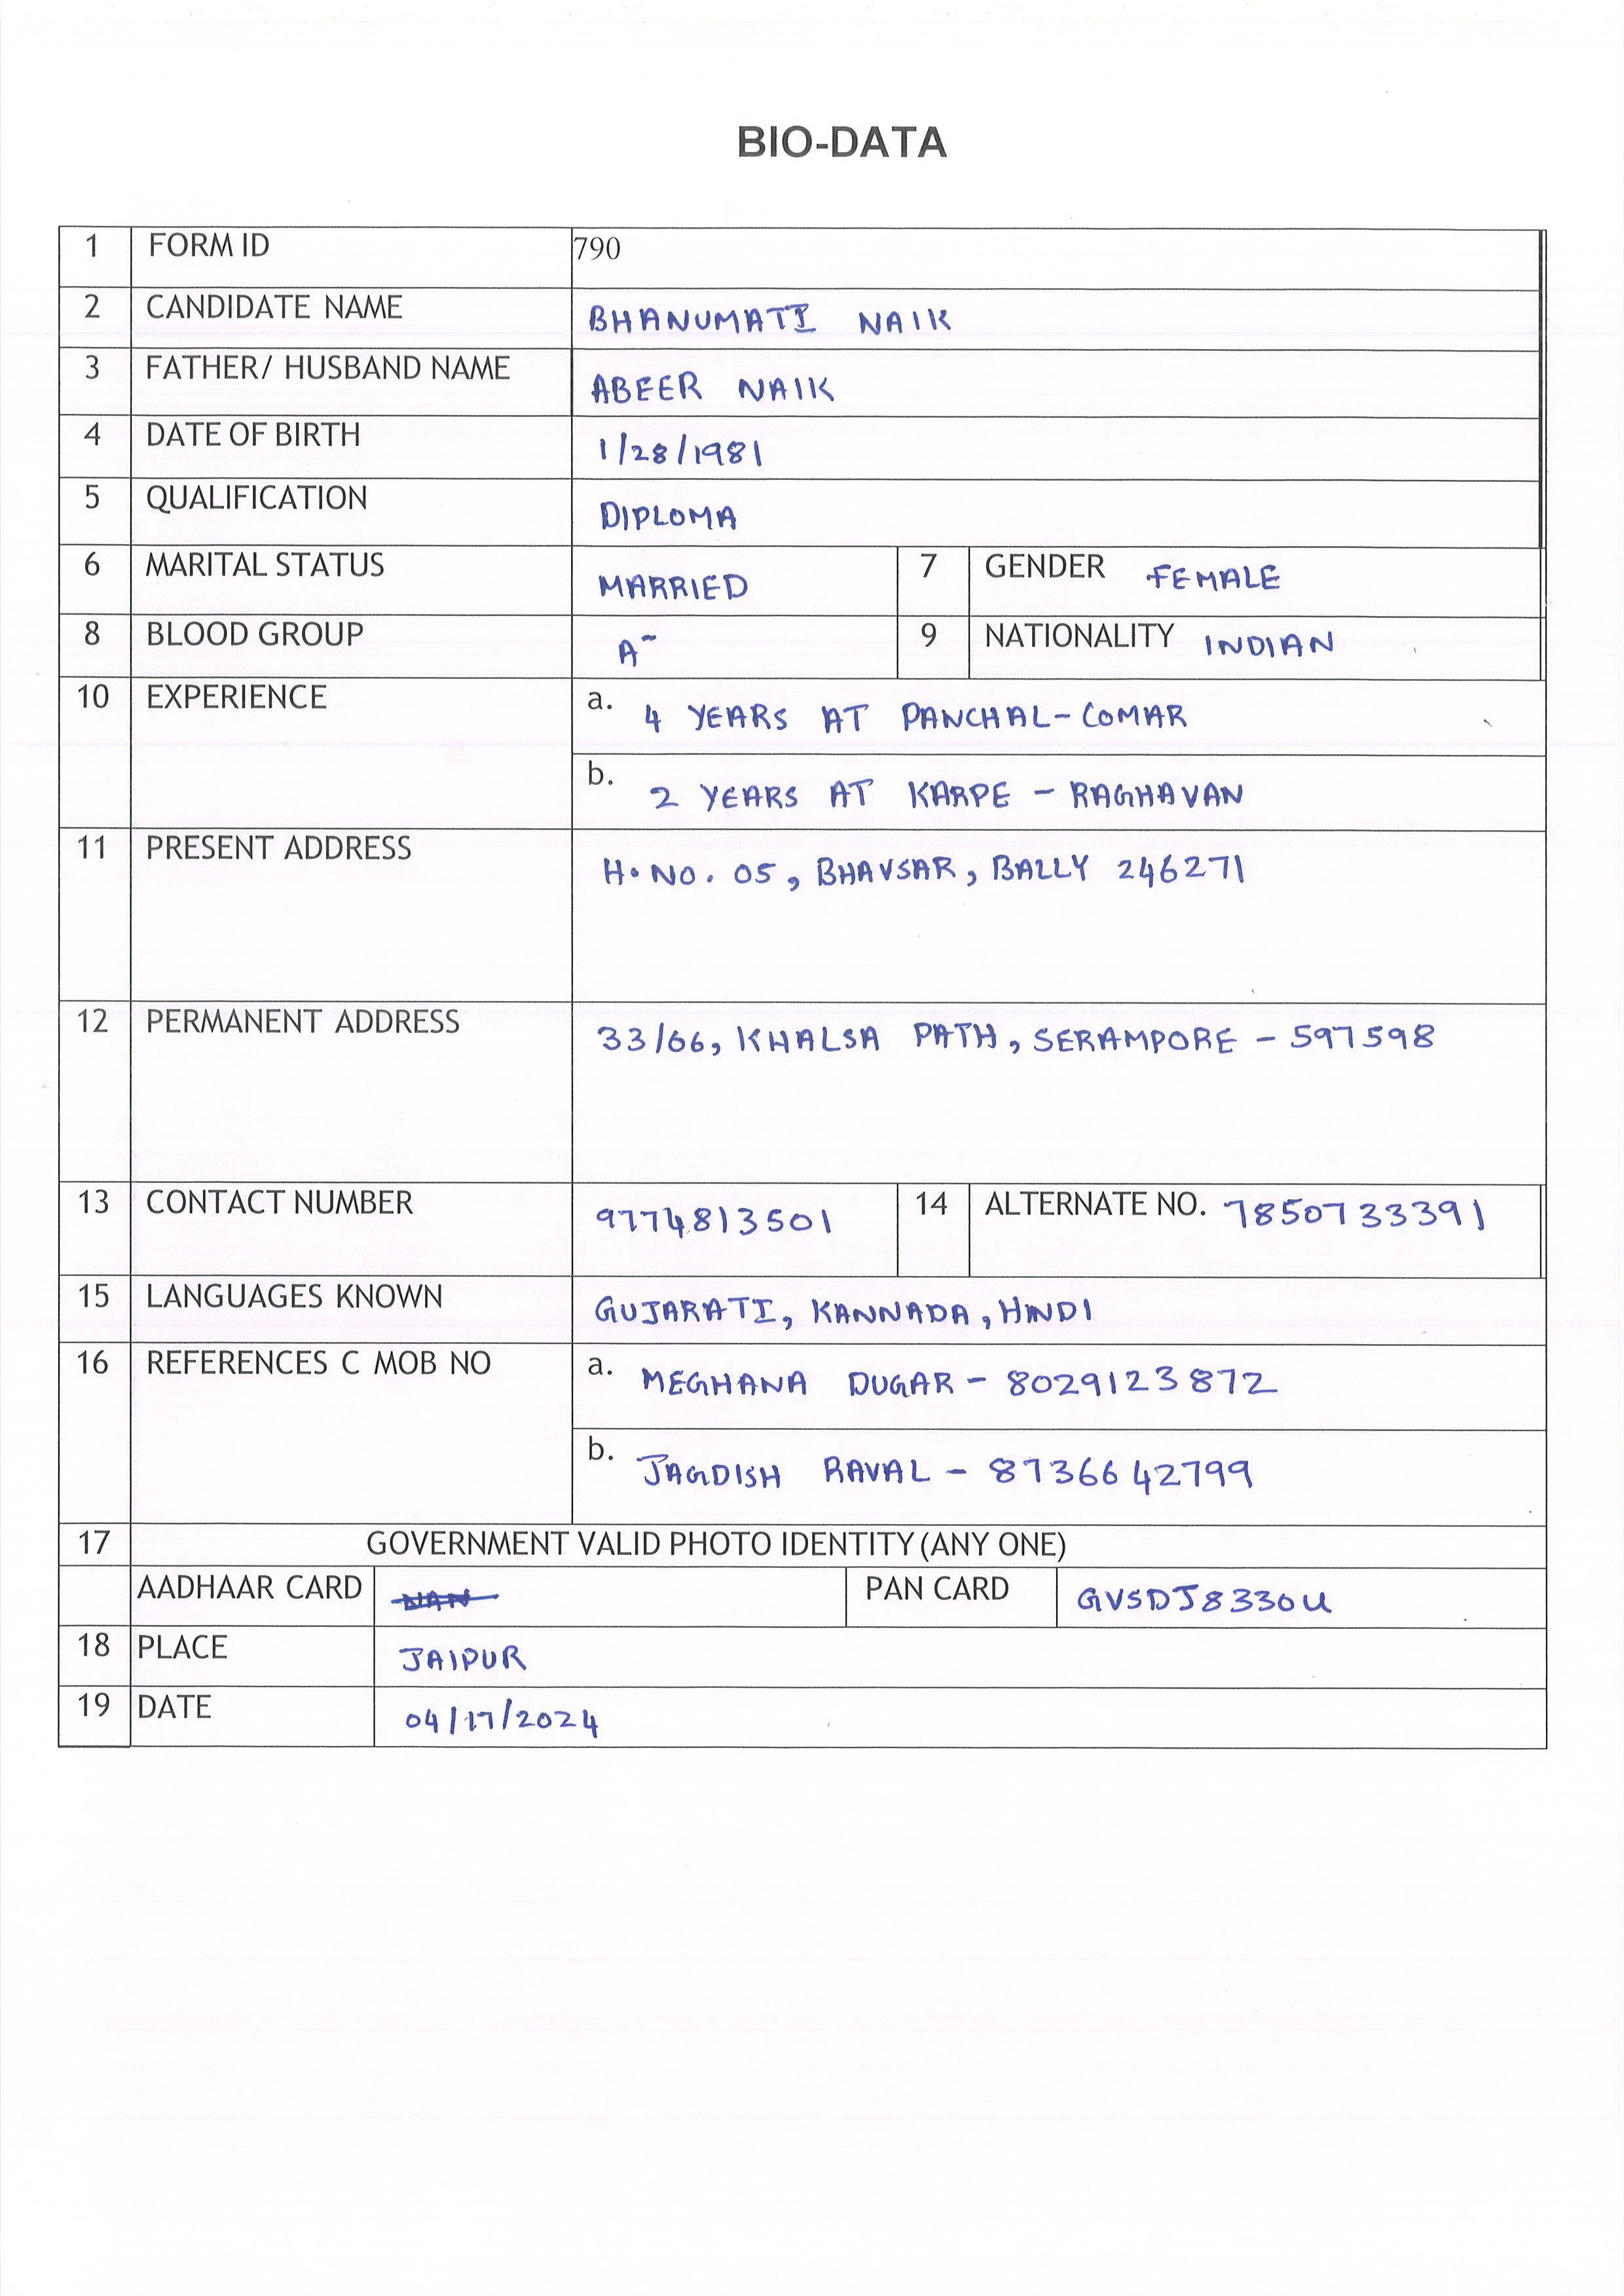 BIO-DATA
1 FORM ID 790
2 CANDIDATE NAME BHANUMATI NAIK
3 FATHER/ HUSBAND NAME ABEER NAIK
4 DATE OF BIRTH 1/28/1981
5 QUALIFICATION DIPLOMA
6 MARITAL STATUS MARRIED 7 GENDER FEMALE
8 BLOOD GROUP A- 9 NATIONALITY INDIAN
10 EXPERIENCE a. 4 YEARS AT PANCHAL-COMAR
b. 2 YEARS AT KARPE - RAGHAVAN
11 PRESENT ADDRESS H. NO. 05, BHAVSAR, BALLY 246271
12 PERMANENT ADDRESS 33/66, KHALSA PATH, SERAMPORE - 597598
13 CONTACT NUMBER 9774813501 14 ALTERNATE NO. 7850733391
15 LANGUAGES KNOWN GUJARATI, KANNADA, HINDI
16 REFERENCES C MOB NO a. MEGHANA DUGAR - 8029123872
b. JAGDISH RAVAL - 8736642799
17 GOVERNMENT VALID PHOTO IDENTITY (ANY ONE)
AADHAAR CARD NAN PAN CARD GVSDJ8330U
18 PLACE JAIPUR
19 DATE 04/17/2024